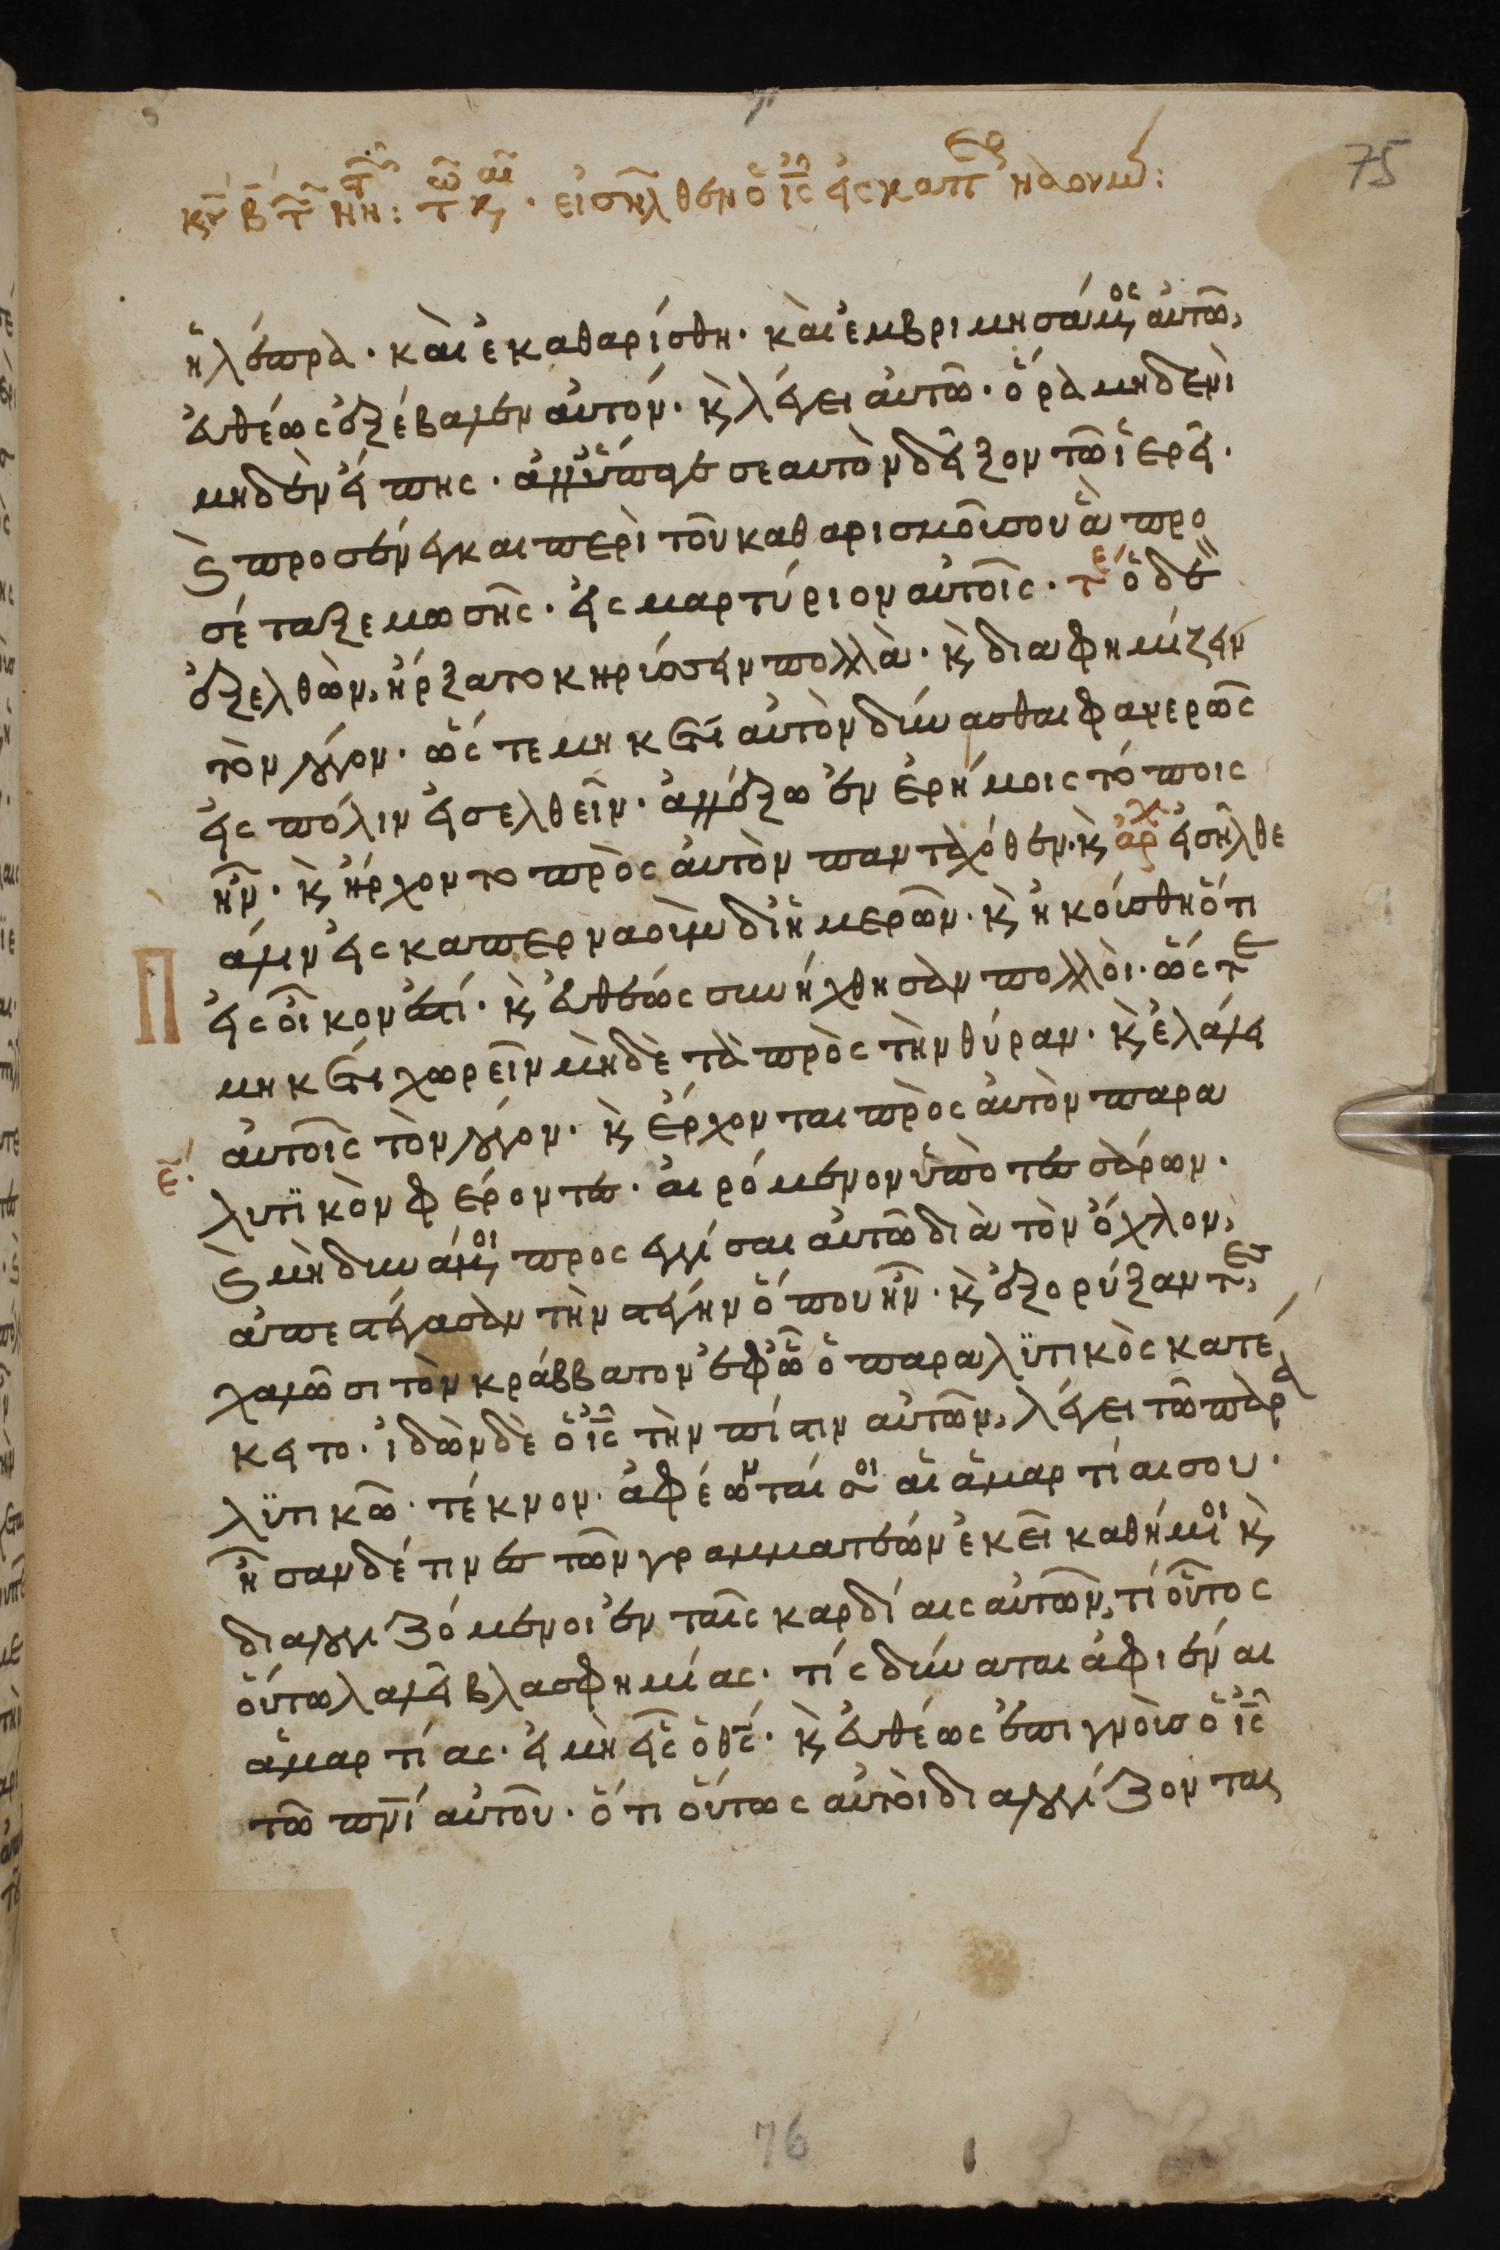 75
κυ β τ νη: τ κ. εἰσῆλθεν ὁ ἰς εἰς καπερναουμ:
ἡ λέπρα. καὶ ἐκαθαρίσθη. καὶ ἐμβριμησάμενος αὐτῶ,
ἐυθέως ἐξέβαλεν αὐτόν. κ λέγει αὐτῶ. ὅρα μηδενὶ
μηδὲν εἴπης. ἀλλ' ὕπαγε σεαυτὸν δεῖξον τῶ ἱερεῖ.
κ προσένεγκαι περὶ τοῦ καθαρισμοῦ σου ἃ προ
σέταξε μωσῆς. εἰς μαρτύριον αὐτοῖς. τε ὁ δὲ
ἐξελθὼν, ἤρξατο κηρύσσειν πολλὰ. κ διαφημίζειν
τὸν λόγον. ὥστε μηκέτι αὐτὸν δύνασθαι φανερῶς
εἰς πόλιν εἰσελθεῖν. ἀλλ' ἔξω ἐν ἐρήμοις τόποις
ἦν. κ ἤρχοντο πρὸς ἀυτὸν πανταχόθεν. κ ἀρχ εἰσῆλθε
πάλιν εἰς καπερναοὺμ δι' ἡμερῶν. κ ἠκούσθη ὅτι
εἰς οἶκον ἐστί. κ ἐυθέως συνήχθησαν πολλοὶ. ὥστε
μηκέτι χωρεῖν μὴδὲ τὰ πρὸς τὴν θύραν. κ ἐλάλει
αὐτοῖς τὸν λόγον. κ ἔρχονται πρὸς ἀυτὸν παρα
ε. λυτϊκὸν φέροντες. αἰρόμενον ὑπὸ τεσσάρων.
κ μὴ δυνάμενοι προσεγγίσαι αὐτῶ διὰ τὸν ὄχλον,
ἀπεστέγασαν τὴν στέγην ὅπου ἦν. κ ἐξορύξαντες,
χαλῶσι τὸν κράββατον ἐφ' ὧ ὁ παραλϋτικὸς κατέ
κειτο. ἰδὼν δὲ ὁ ἰς τὴν πίστιν αὐτῶν, λέγει τῶ παρα
λϋτικῶ. τέκνον. ἀφέωνταί σοι αἱ ἁμαρτίαι σου.
ἦσαν δέ τινες τῶν γραμματέων ἐκεῖ καθήμενοι κ
διαλογιζόμενοι ἐν ταῖς καρδίαις αὐτῶν, τί οὗτος
οὕτω λαλεῖ βλασφημίας. τίς δύναται ἀφιέναι
ἁμαρτίας. εἰ μὴ εἷς ὁ θς. κ ἐυθέως ἐπιγνοὺς ὁ ἰς
τῶ πνι αὐτοῦ. ὅτι οὕτως αὐτοὶ διαλογίζονται
76